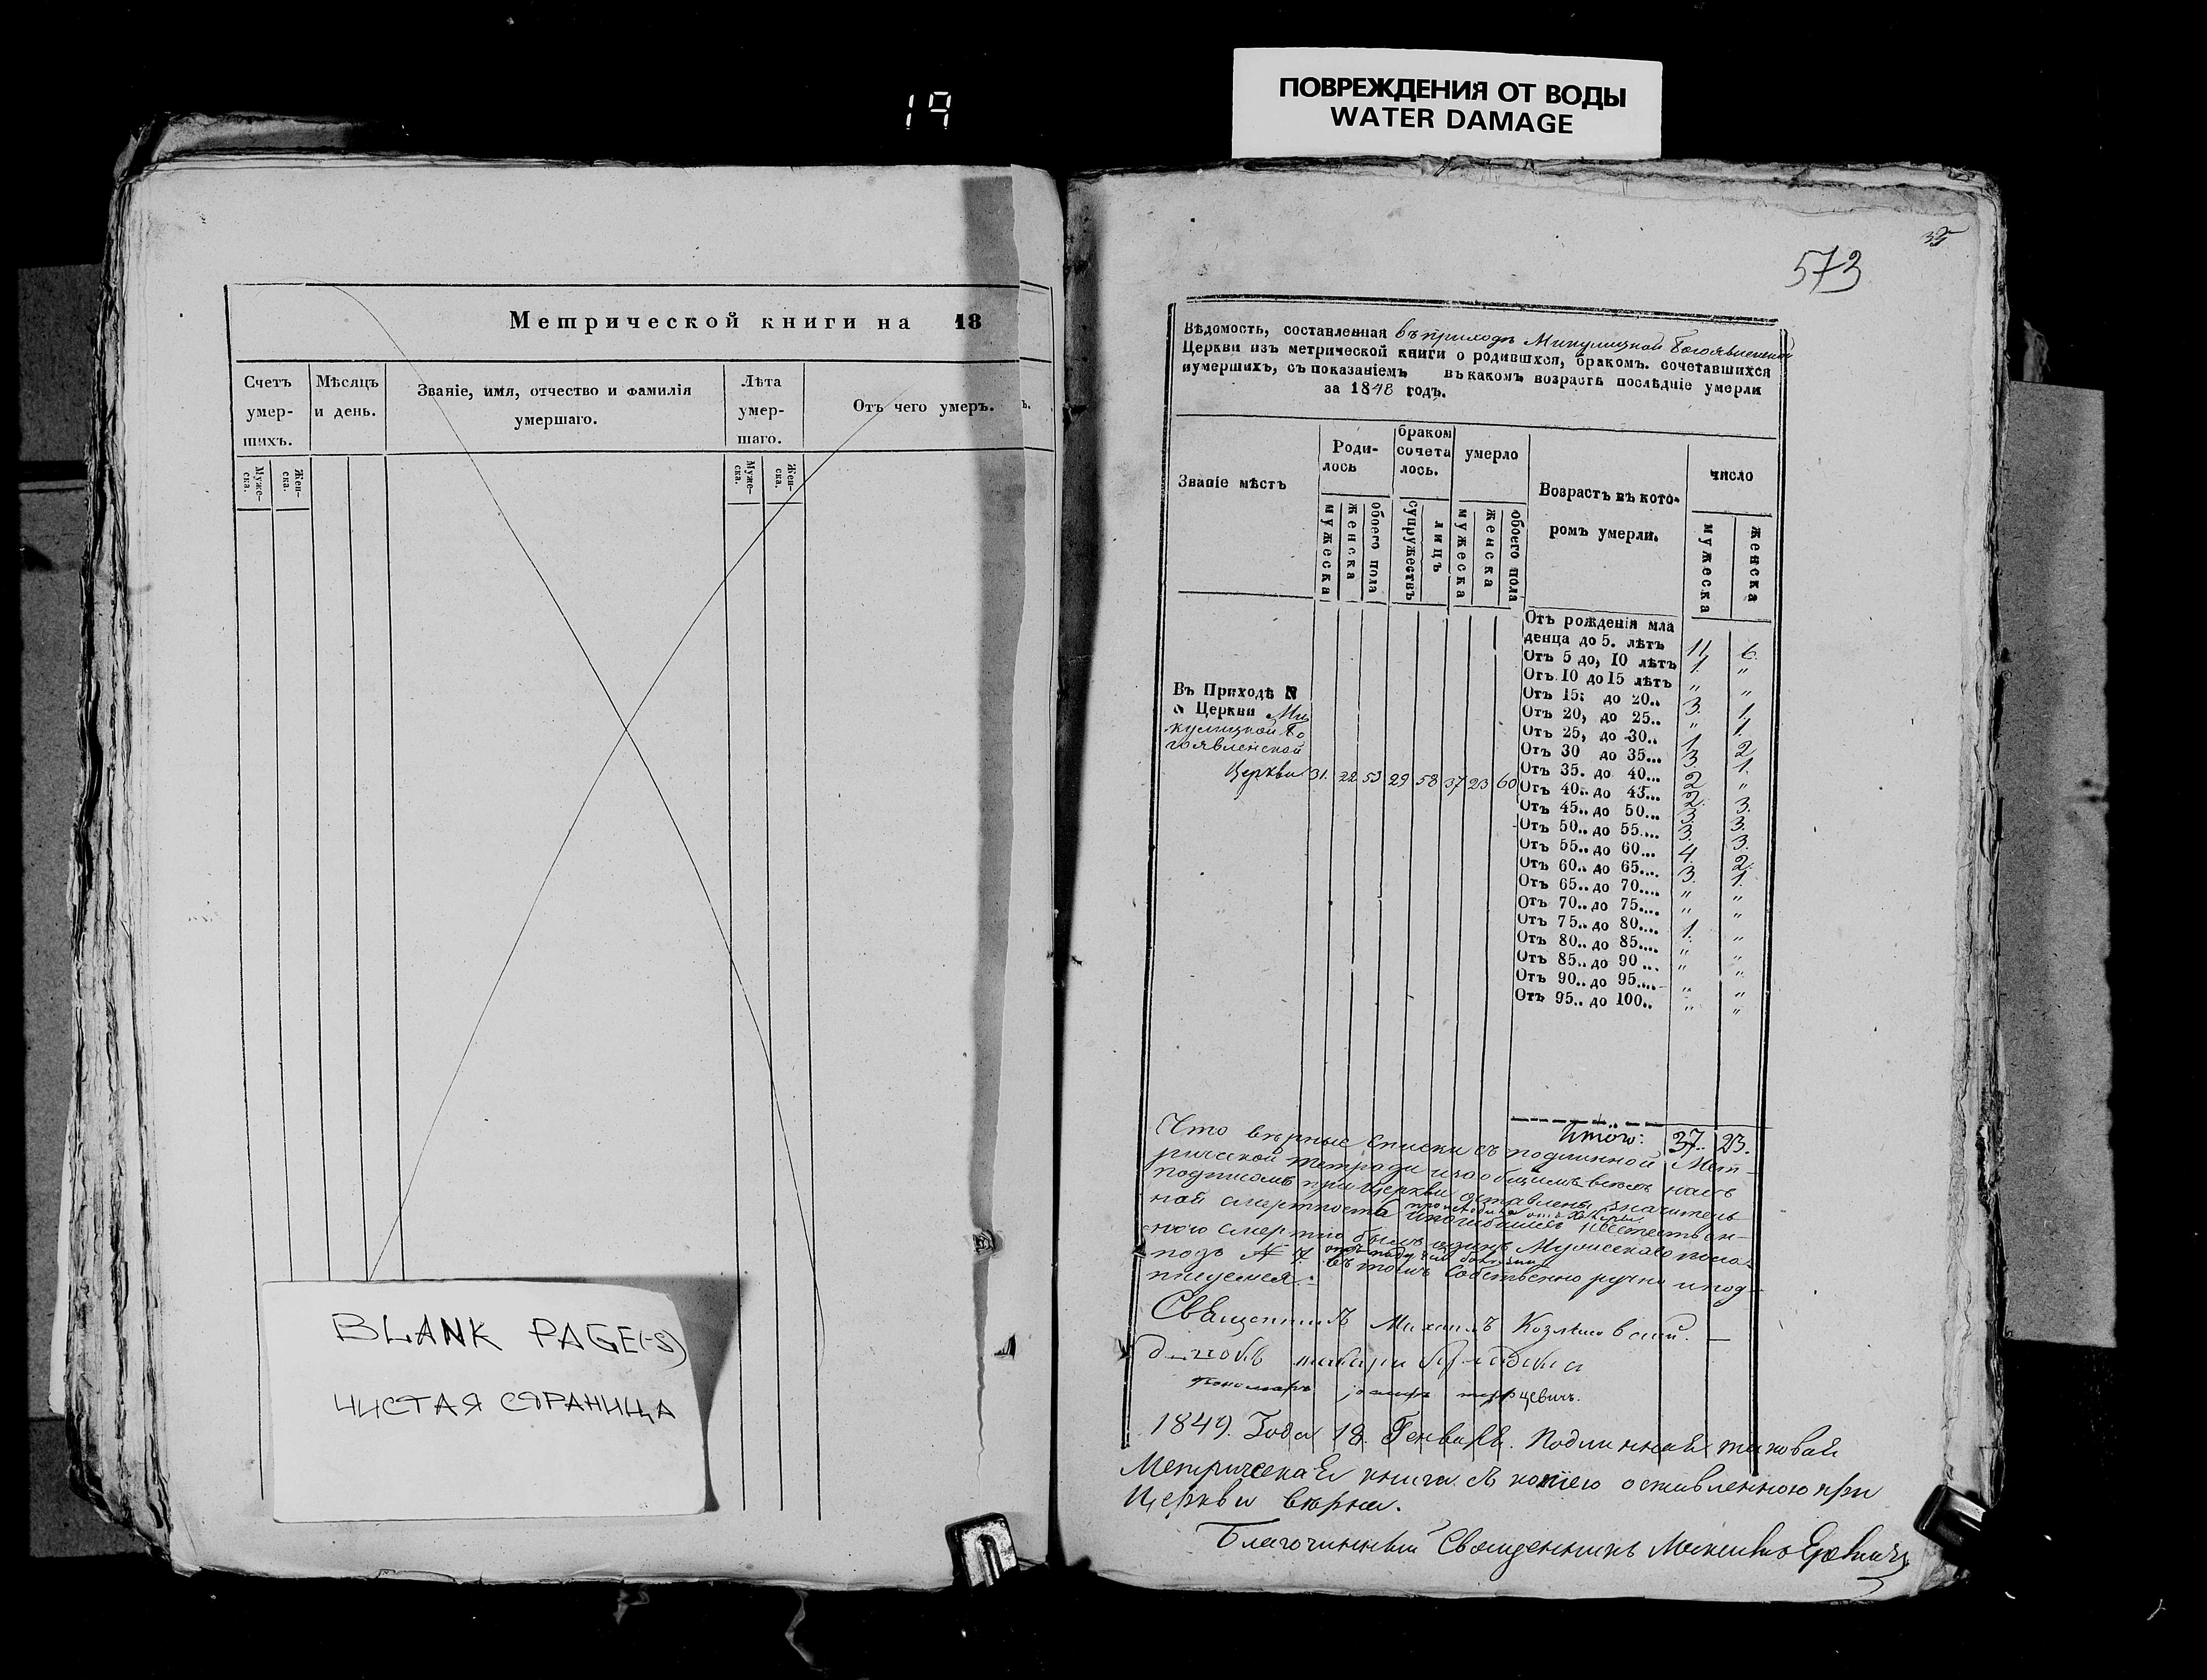 19
ПОВРЕЖДЕНИЯ ОТ ВОДЫ
WATER DAMAGE
Метрической книги на 18
Счетъ умершихъ.
Мѣсяцъ и день.
Званіе, имя, отчество и фамилія умершаго.
Лѣта умершаго.
Отъ чего умеръ.
ъ.
Муже-ска.
Жен-ска.
Муже-ска.
Жен-ска.
BLANK PAGE(-S)
ЧИСТАЯ СТРАНИЦА
573
Вѣдомость, составленная въ приходѣ Микулицкой Богоявленской
Церкви изъ метрической книги о родившхся, бракомъ. сочетавшихся
иумершихъ, съ показаніемъ въ какомъ возрастѣ послѣдніе умерли
за 1848 годъ.
Званіе мѣстъ
Роди-
лось
браком
сочета
лось.
умерло
Возрастъ въ кото-
ромъ умерли.
число
мужеска
женска
обоего пола
супружествъ
лицъ
мужеска
женска
обоего пола
мужеска
женска
Отъ рожденія мла
денца до 5. лѣтъ 11 6.
Отъ 5 до, 10 лѣтъ 1. "
Отъ. 10 до 15 лѣтъ " "
Отъ 15; до 20.. 3. 1.
Отъ 20, до 25.. " 1.
Отъ 25, до 30.. 1 2
Отъ 30 до 35... 3. 1.
Отъ 35. до 40... 2 "
Отъ 40.. до 45... 2. 3.
Отъ 45.. до 50... 3. 3.
Отъ 50.. до 55.... 3. 3.
Отъ 55.. до 60... 4. 2.
Отъ 60.. до 65.... 3. 1.
Отъ 65.. до 70.... " "
Отъ 70.. до 75.... " "
Отъ 75.. до 80.... 1. "
Отъ 80.. до 85.... " "
Отъ 85.. до 90 .... " "
Отъ 90.. до 95.... " "
Отъ 95.. до 100.. " "
Въ Приходѣ N
N Церкви Ми
кулицкой Бо
гоявленской
Церкви 31. 22 53 29 58 37 23 60
Итого: 37. 23.
Что вѣрные списки съ подлинной Мет-
рической тетради и за общимъ всехъ насъ
подписомъ при Церкви оставлены, значитель-
ной смертности происходила отъ холеры
и погибшихъ неестествен-
ною смертію былъ одинъ Мужескаго пола
подъ № 7. въ томъ собственно ручно и под-
писуемся.
Священникъ Михаилъ Козловский.
Пономарь
1849. Года 18. Генваря. Подлинная таковая
Метрическая книга съ копіею оставленною при
Церкви вѣрна.
Благочинный Священникъ